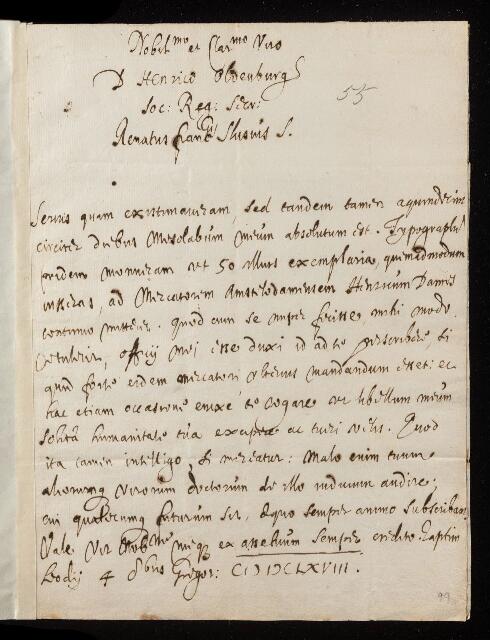 Nobil^mo et Clar^mo Viro
D Henrico Oldenburg
55
Soc: Reg: Secr:
Renatus Franc^us Slusius S.
Serius quam existimaveram, sed tandem tamen a quindecim
circiter diebus Mesolabum meum absolutum est. Typographum
pridem monueram ut 50 illius exemplaria, quemadmodum
inter nos, ad Mercatorem Amstelodamensem Henricum
continuo mitteret. Quod cum se nuper fecisse mihi modo
retulerit, officij mei esse duxi id ad te perscribere si
quid forte eidem mercatori ulterius mandandum esset: ac
hac etiam occasione enixe te rogare ut libellum meum
solita humanitate tua excipere ac tueri velis. Quod
ita tamen intelligo, si mereatur: Malo enim tuum
aliorumq virorum doctorum de illo iudicium audire,
cui qualecumq futurum sit, aequo semper animo subscribam.
Vale Vir Nobil^me meq ex asse tuum semper credito. Raptim
Leodij 4 8bris Gregor: CIƆ IƆCLXVIII.
99